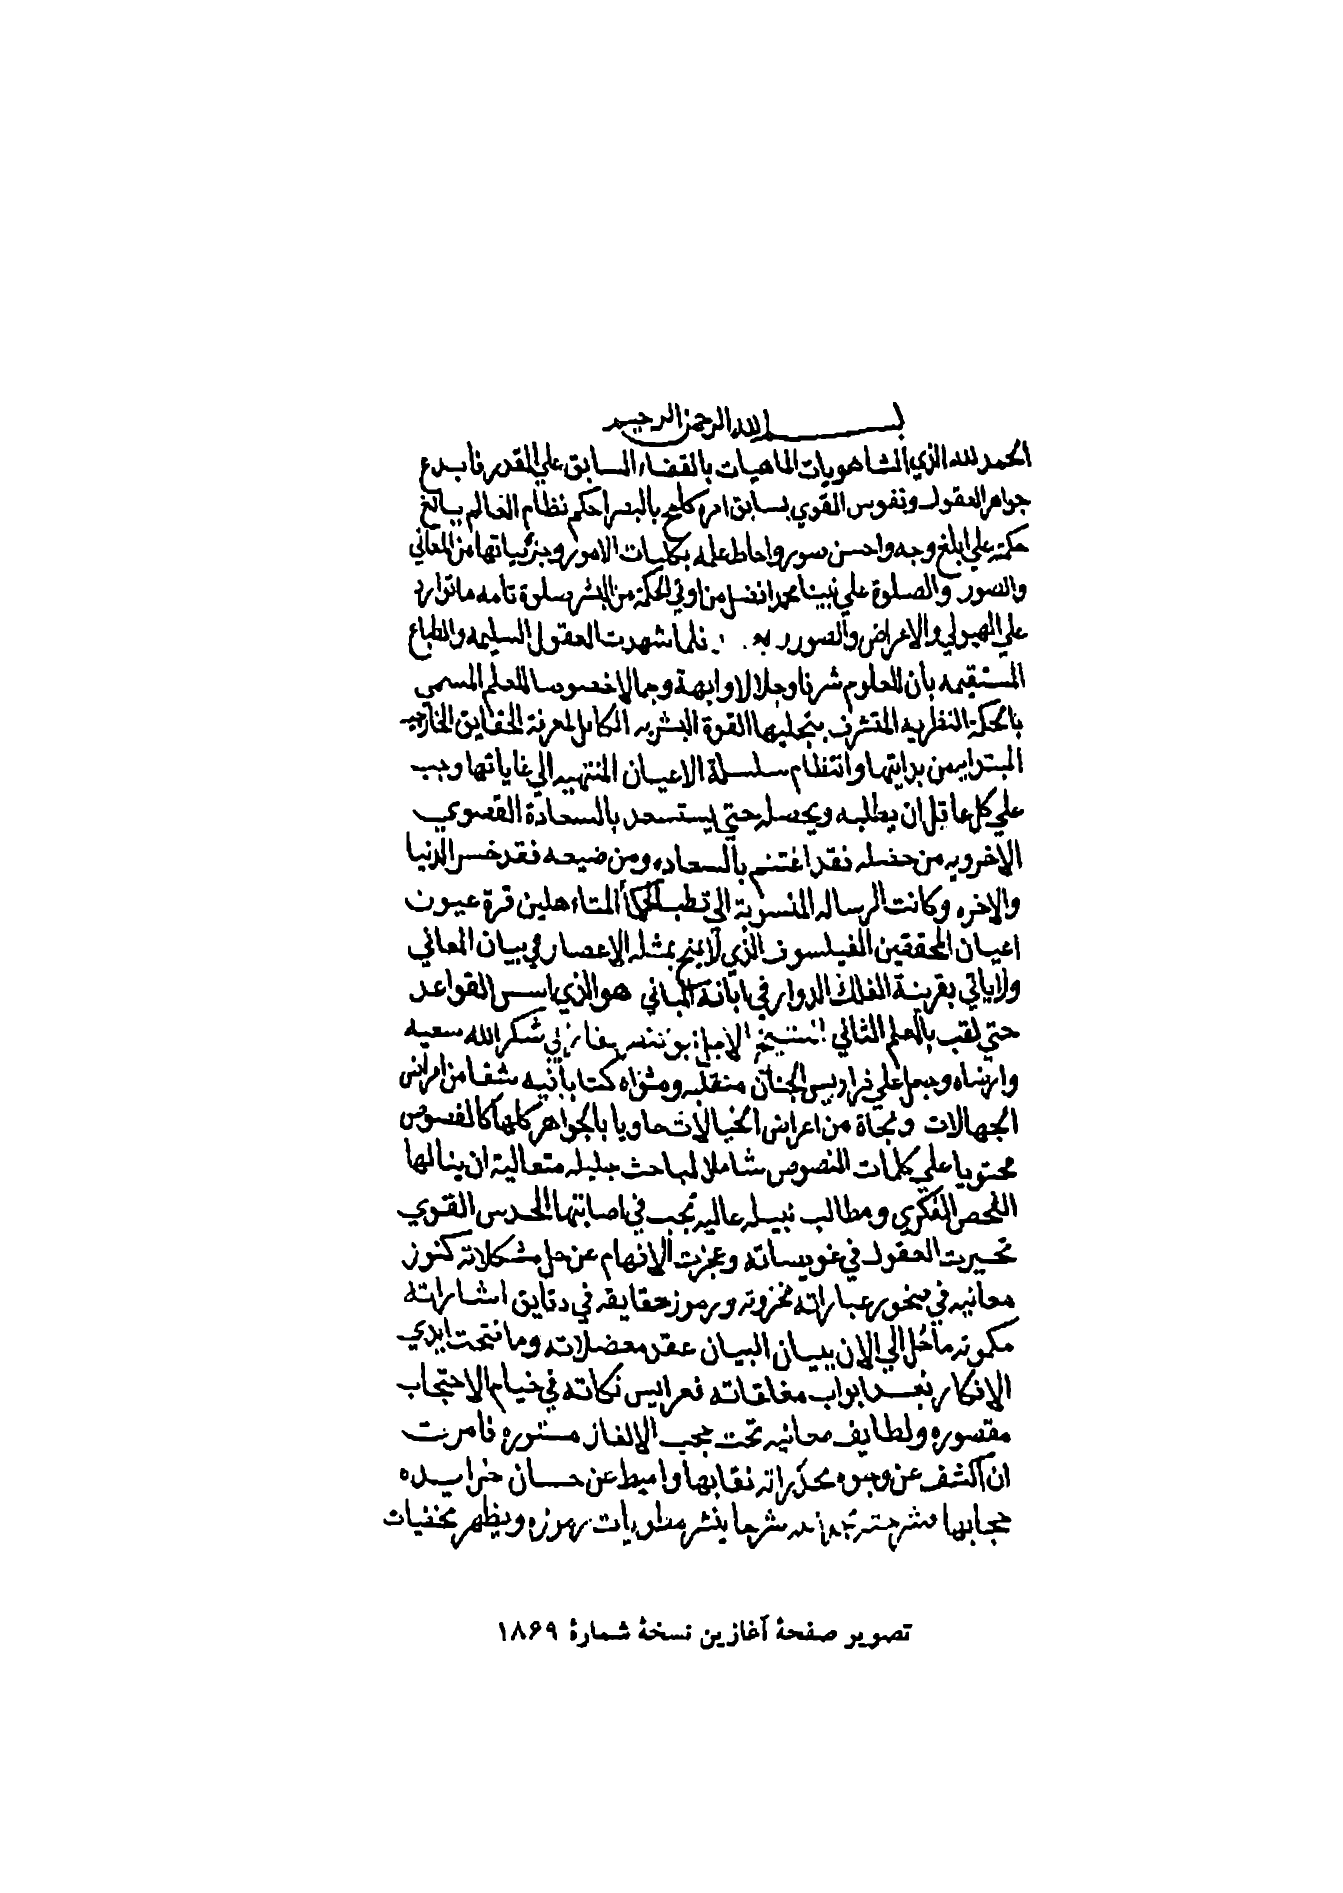 بسم لله الرحمن الرحيم
الحمد لله الذي انشا هويات الماهيات بالقضاء السابق علي القدر فابدع
جواهر العقول ونفوس القوي بسابق امره كلمح بالبصر احكم نظام العالم ببالغ
حكمته علي ابلغ وجه واحسن صور واحاط علمه بكليات الامور وجزئياتها من المعاني
والصور والصلوة علي نبينا محمد افضل من اوتي الحكمة من البشر صلوة تامه ما توارد
علي الهيولي والاعراض والصور فلما شهدت العقول السليمه والطباع
المستقيمه بان للعلوم شرفا وجلالا وابهة وجمالا خصوصا للعلم المسمي
بالحكمة النظريه المتشرف بتجليها القوة البشريه الكامل لمعرفة الحقايق الخارجيه
المبتدايه من بدايتها وانتظام سلسلة الاعيان المنتهيه الي غاياتها وجب
علي كل عاقل ان يطلبه ويحصله حتي يستسعد بالسعادة القصوي
الاخرويه من حصله فقد اغتنم بالسعاده ومن ضيعه فقد خسر الدنيا
والاخره وكانت الرساله المنسوبة الي قطب الحكما المتاءهلين قرة عيون
اعيان المحققين الفيلسوف الذي لا يمنح بمثله الاعصار في بيان المعاني
ولا ياتي بقرينة الفلك الدوار في ابانة المباني هو الذي اسس القواعد
حتي لقب بالمعلم الثاني الشيخ الاجل ابو نصر فارابي شكر الله سعيه
وارضاه وجعل علي فراديس الجنان منقلبه ومثواه كتابا فيه شفا من امراض
الجهالات ونجاة من اعراض الخيالات حاويا بالجواهر كلها كالفصوص
محتويا علي كلمات النصوص شاملا لمباحث جليله متعالية ان ينالها
الفحص الفكري ومطالب نبيله عاليه تجب في اصابتها الحدس القوي
تحيرت العقول في عويساته وعجزت الافهام عن حل مشكلاته كنوز
معانيه في صخور عباراته مخزونه ورموز حقايقه في دقايق اشاراته
مكمونه ما حل الي الان ببنان البيان عقد معضلاته وما فتحت ايدي
الافكار بعد ابواب مغلقاته فعرايس نكاته في خيام الاحتجاب
مقصوره ولطايف معانيه تحت حجب الالفاز مستوره فامرت
ان اكشف عن وجوه مخدراته نقابها واميط عن حسان خرايده
حجابها فشرحته شرحا ينشر مطويات رموزه ويظهر مخفيات
تصویر صفحهٔ آغازین نسخهٔ شمارهٔ ۱۸۶۹